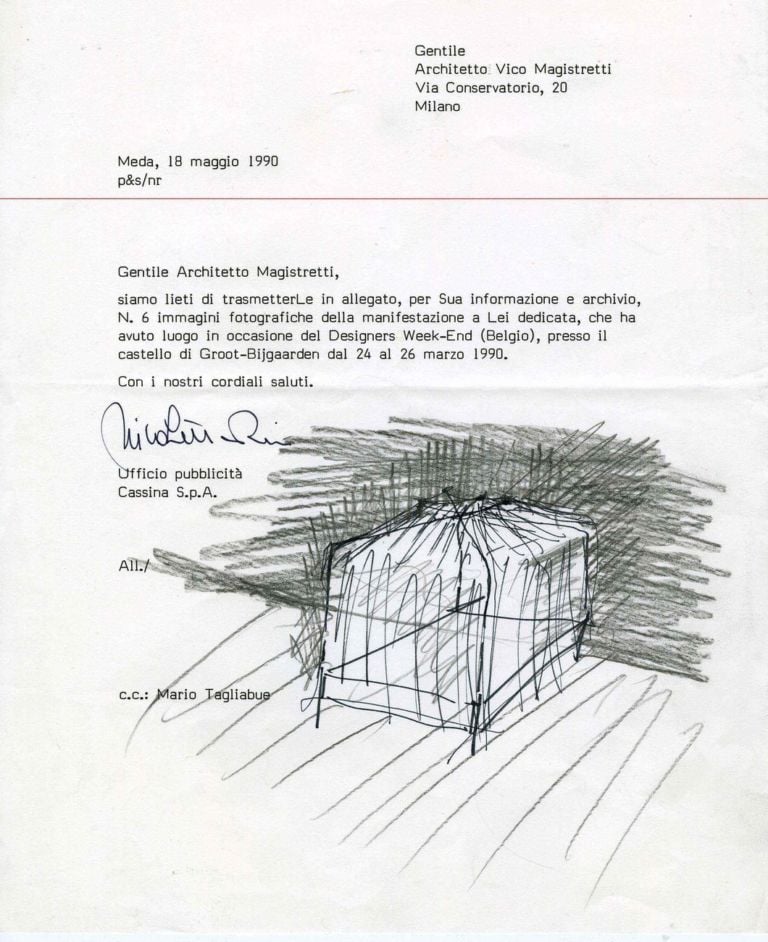 Gentile
Architetto Vico Magistretti
Via Conservatorio, 20
Milano
Meda, 18 maggio 1990
p&s/nr
Gentile Architetto Magistretti,
siamo lieti di trasmetterLe in allegato, per Sua informazione e archivio,
N. 6 immagini fotografiche della manifestazione a Lei dedicata, che ha
avuto luogo in occasione del Designers Week-End (Belgio), presso il
castello di Groot-Bijgaarden dal 24 al 26 marzo 1990.
Con i nostri cordiali saluti.
Ufficio pubblicità
Cassina S.p.A.
All./
c.c.: Mario Tagliabue